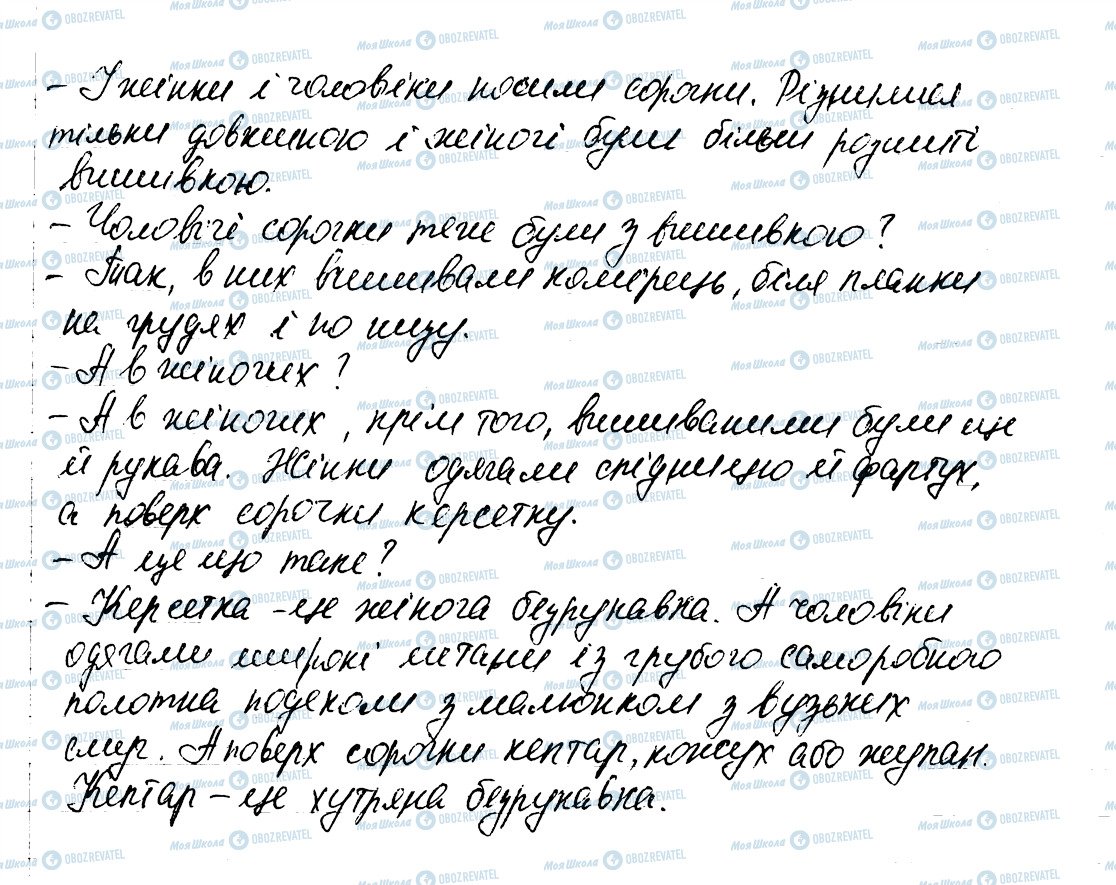 - І жінки і чоловіки носили сорочки. Різнилися
тільки довжиною і жіночі були більш розшиті
вишивкою.
- Чоловічі сорочки теж були з вишивкою?
- Так, в них вишивали комірець, біля планки
на грудях і по низу.
- А в жіночих?
- А в жіночих, крім того, вишиваними були ще
й рукава. Жінки одягали спідницю й фартух,
а поверх сорочки керсетку.
- А це що таке?
- Керсетка - це жіноча безрукавка. А чоловіки
одягали широкі штани із грубого саморобного
полотна подеколи з малюнком з вузьких
смуг. А поверх сорочки кептар, кожух або жупан.
Кептар - це хутряна безрукавка.
Моя Школа OBOZREVATEL